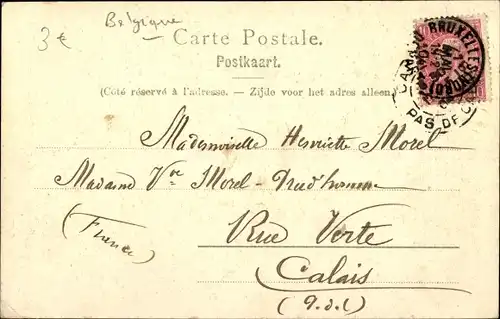 3 €
Belgique
Carte Postale.
Postkaart.
(Côté réservé à l'adresse. — Zijde voor het adres alleen.)
BRUXELLES
PAS DE C
Mademoiselle Henriette Morel
Madame Vve Morel-Prud'homme
Rue Verte
(France)
Calais
(P.d.C)